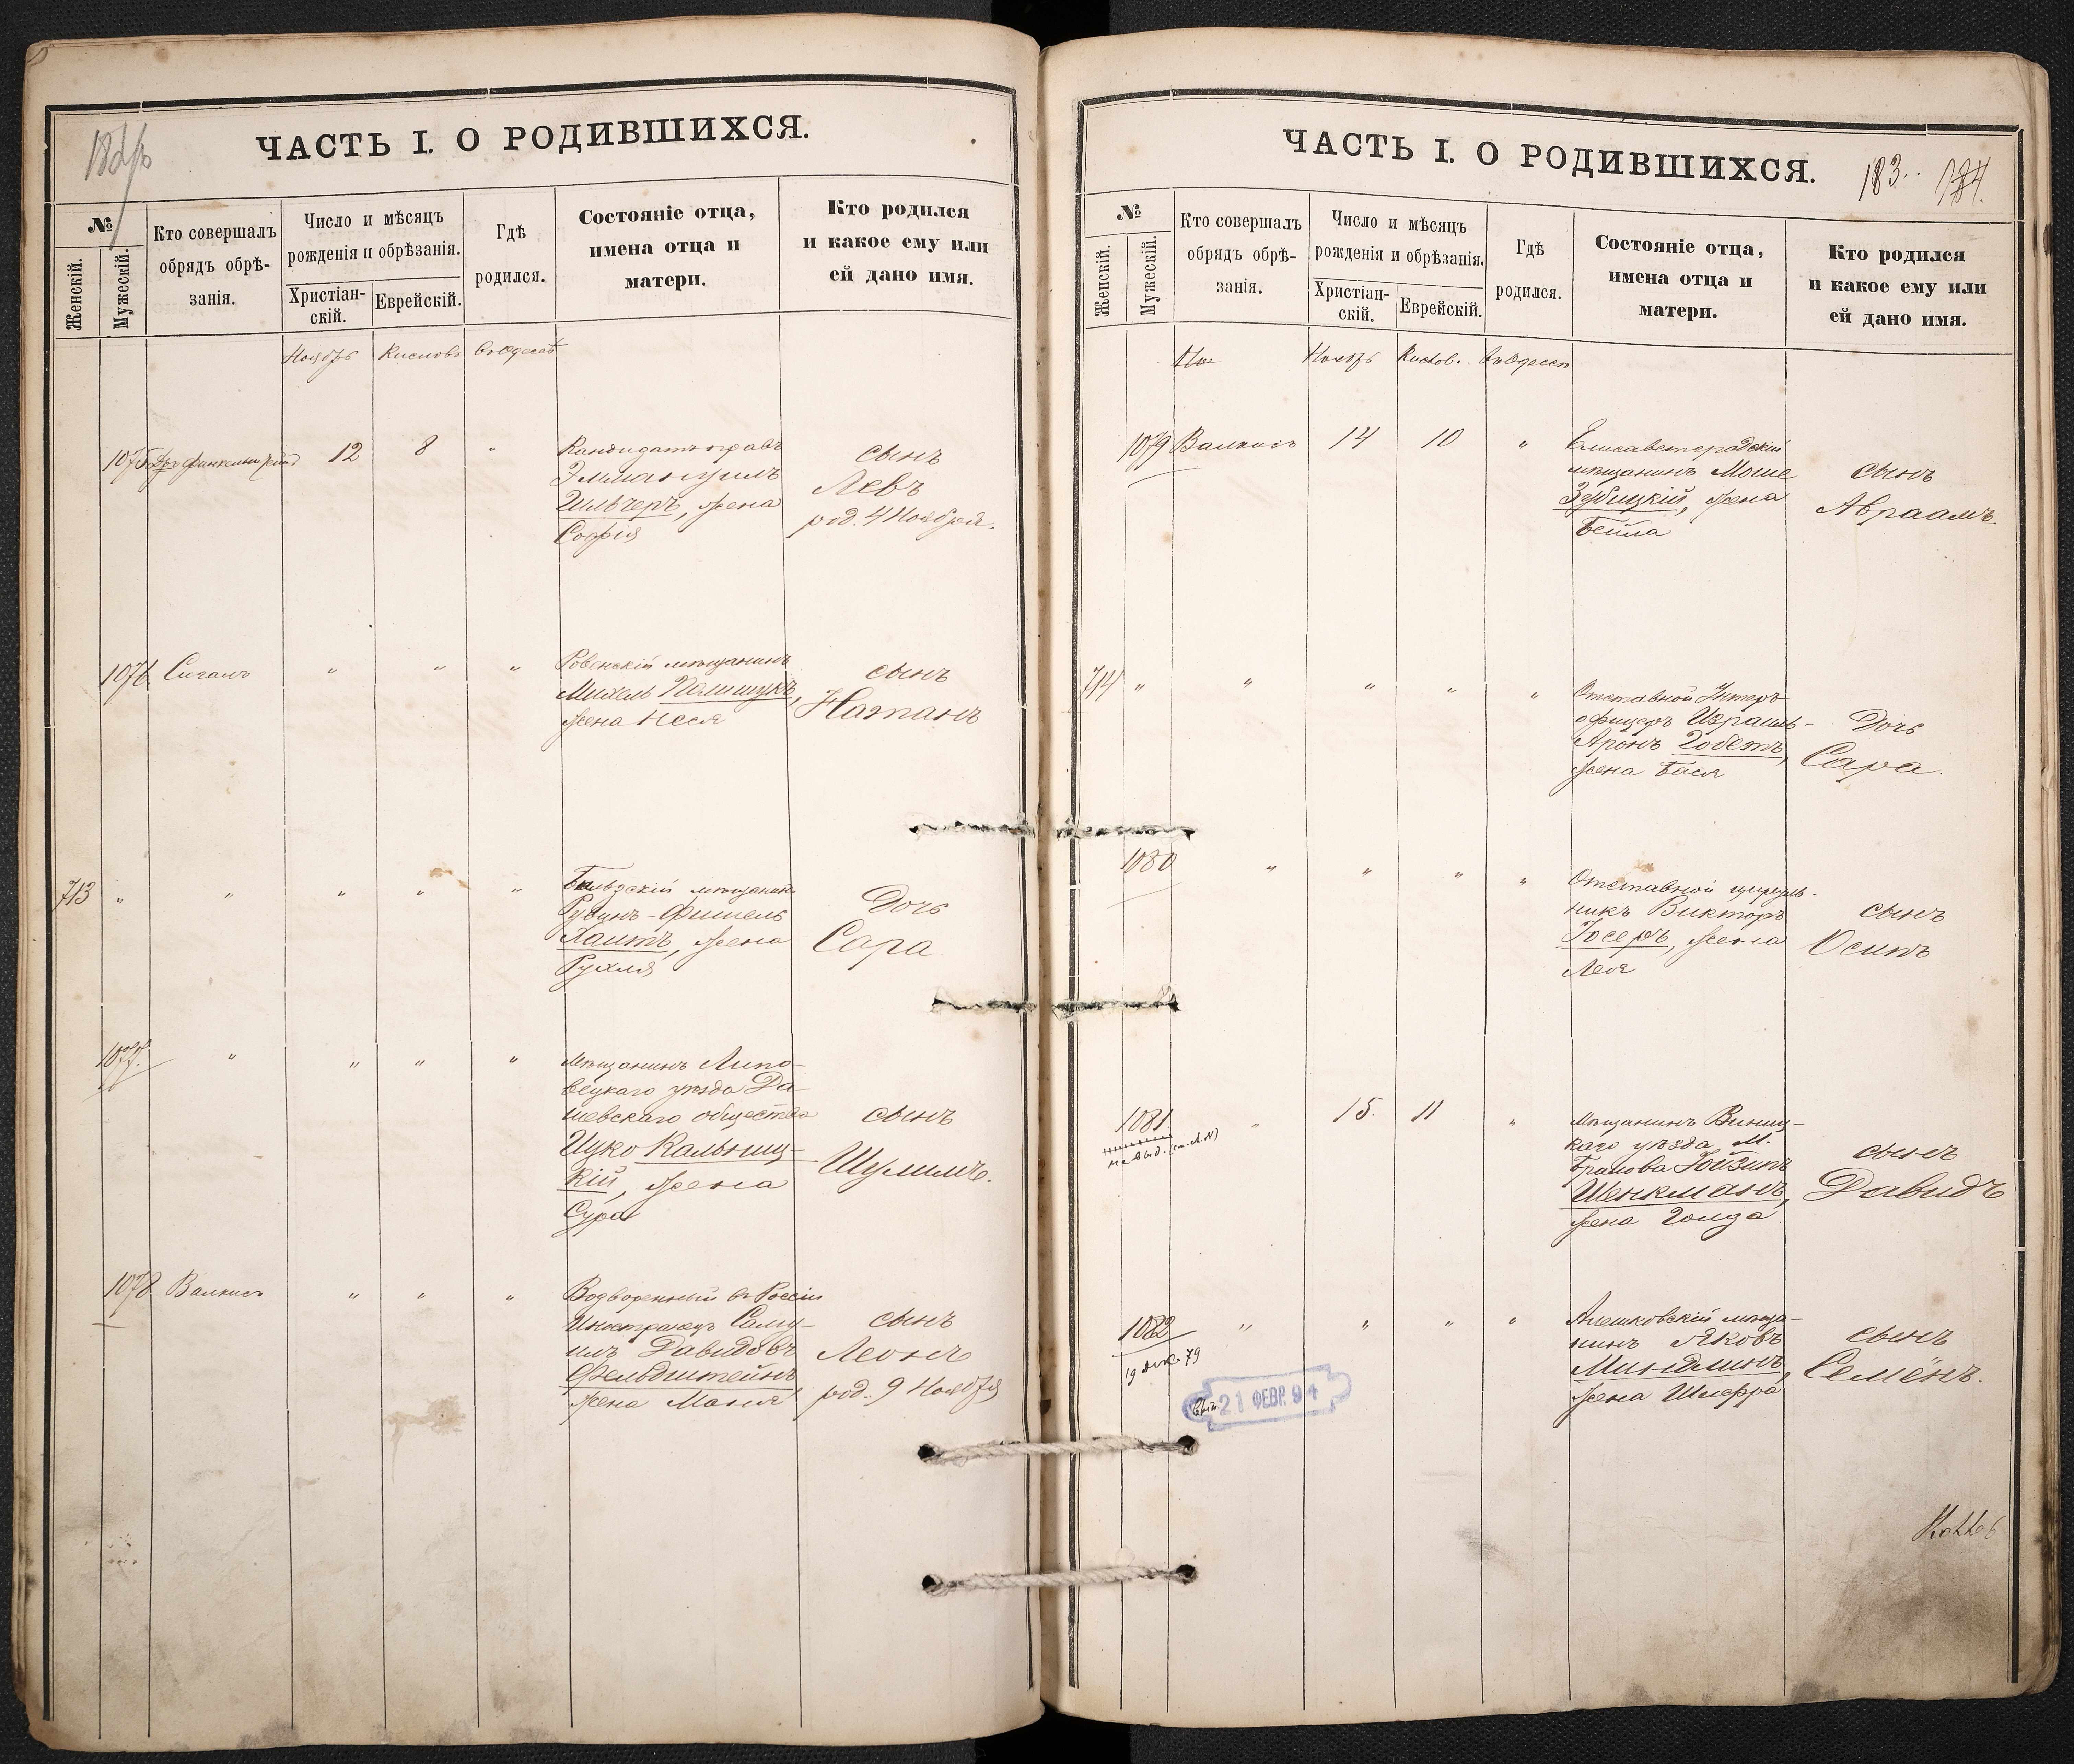 ЧАСТЬ I. О РОДИВШИХСЯ.
№
Женскій.
Мужескій.
Кто совершалъ
обрядъ обрѣ-
занія.
Число и мѣсяцъ
рожденія и обрѣзанія.
Христіан-
скій.
Еврейскій.
Гдѣ
родился.
Состояніе отца,
имена отца и
матери.
Кто родился
и какое ему или
ей дано имя.
Ноябрь Кислевъ въ Одессѣ
1075 Дръ Финкельштейнъ 12 8 "
Кандидатъ правъ
Эммануилъ
Цильчеръ, жена
Софія
сынъ
Левъ
род. 4 Ноября.
1076 Сигалъ " " "
Ровенскій мѣщанинъ
Михель Полищукъ,
жена Неся
сынъ
Натанъ
713 " " " " "
Бѣльзскій мѣщанинъ
Рувинъ-Фишель
Хаитъ, жена
Рухля
Дочь
Сара
1077. " " " "
Мѣщанинъ Липо-
вецкаго уѣзда Да-
шевскаго общества
Ицко Кальниц-
кій, жена
Сура
сынъ
Шулимъ.
1078 Валкисъ " " "
Водворенный въ Россіи
Иностранецъ Саму-
илъ Давидовъ
Фельдштейнъ,
жена Маня
сынъ
Леонъ
род. 9 Ноября
ЧАСТЬ I. О РОДИВШИХСЯ.
183. 184.
№
Женскій.
Мужескій.
Кто совершалъ
обрядъ обрѣ-
занія.
Число и мѣсяцъ
рожденія и обрѣзанія.
Христіан-
скій.
Еврейскій.
Гдѣ
родился.
Состояніе отца,
имена отца и
матери.
Кто родился
и какое ему или
ей дано имя.
Но Ноябрь Кислевъ. въ Одессѣ
1079 Валкисъ 14 10 "
Елисаветградскій
мѣщанинъ Моше
Зубицкій, жена
Бейла
сынъ
Авраамъ.
714 " " " " "
Отставной Унтеръ-
офицеръ Израиль-
Аронъ Гобетъ,
жена Бася
Дочь
Сара.
1080 " " " "
Отставной цируль-
никъ Викторъ
Госеръ, жена
Лея
сынъ
Осипъ
1081 " 15. 11 "
Мѣщанинъ Винниц-
каго уѣзда, М.
Браилова
Шенкманъ,
жена Голда
сынъ
Давидъ
1082 " " " "
19 79
21 ФЕВР. 94
Алешковскій мѣща-
нинъ Яковъ
Миндлинъ,
жена Шифра
сынъ
Семёнъ.